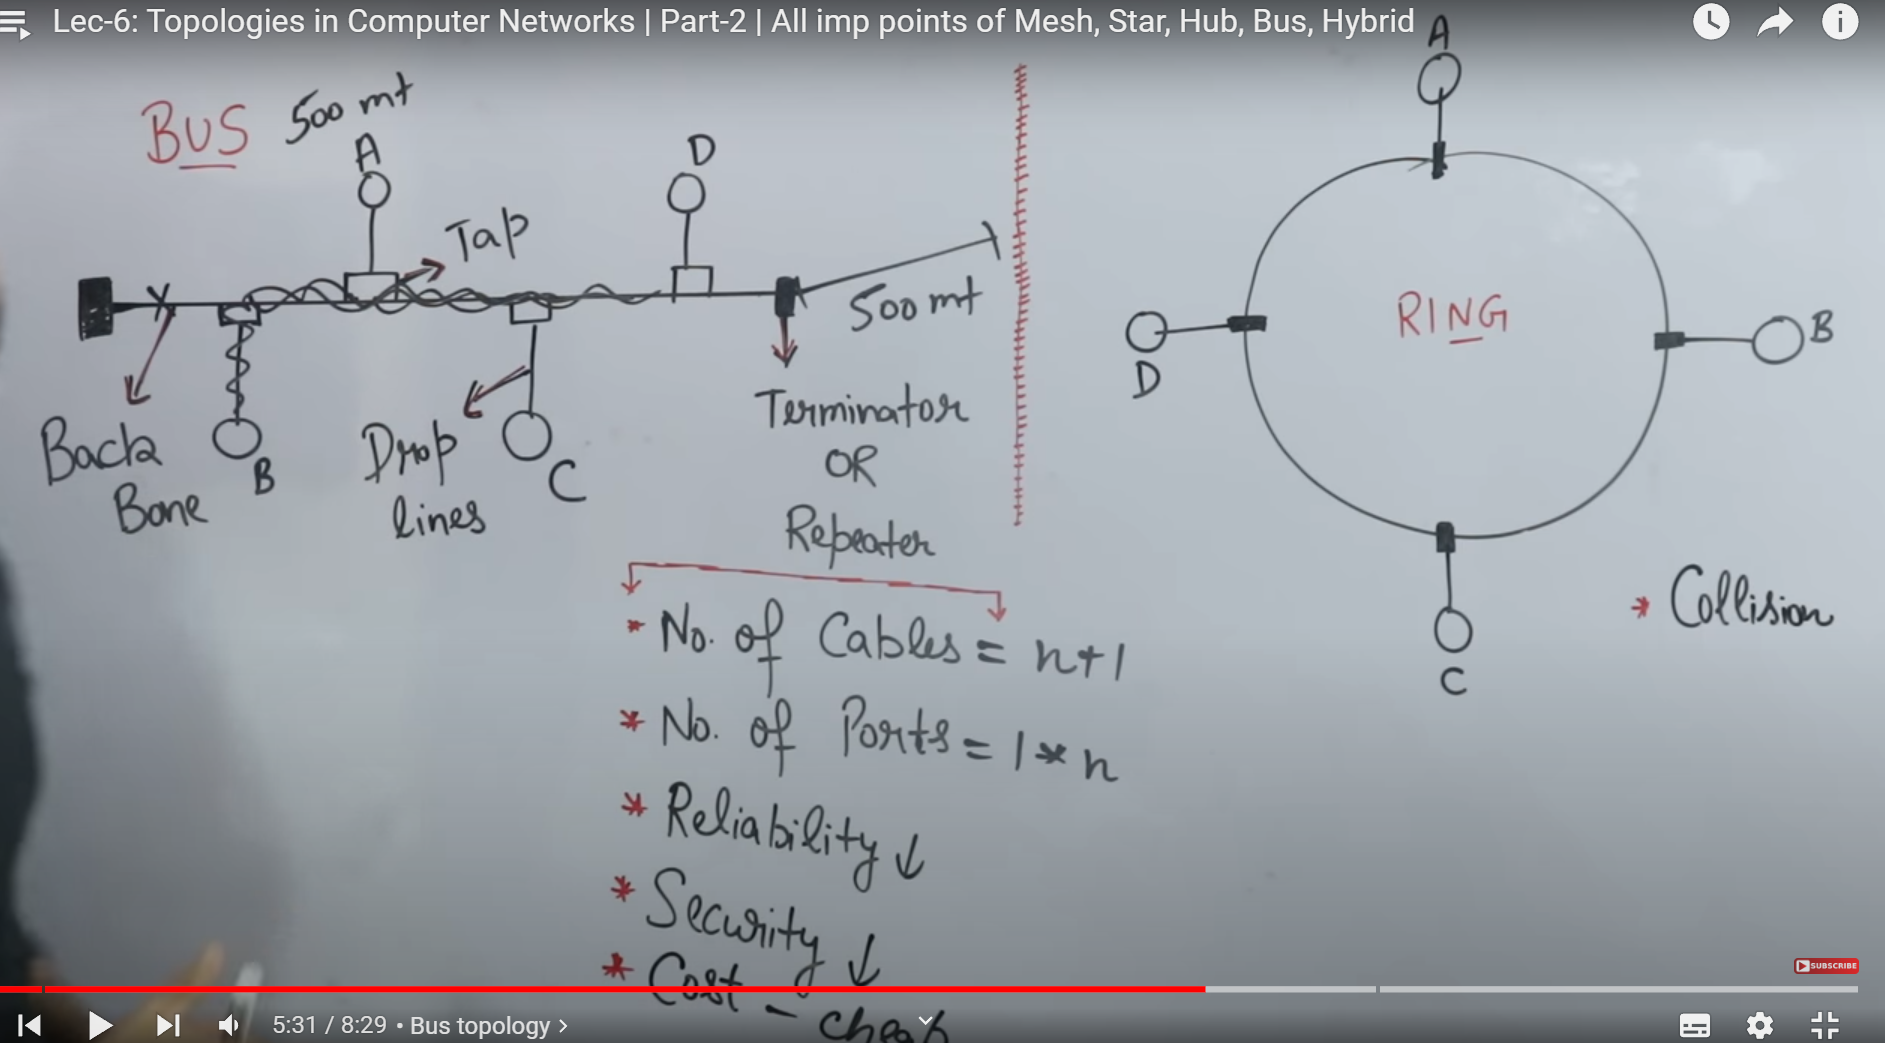 Lec-6: Topologies in Computer Networks | Part-2 | All imp points of Mesh, Star, Hub, Bus, Hybrid
BUS 500 mt
A
D
Tap
500 mt
Back
Bone
B
Drop
lines
C
Terminator
OR
Repeater
* No. of Cables = n+1
* No. of Ports = 1 * n
* Reliability ↓
* Security ↓
* Cost - cheap
A
RING
B
D
C
* Collision
SUBSCRIBE
5:31 / 8:29 • Bus topology >